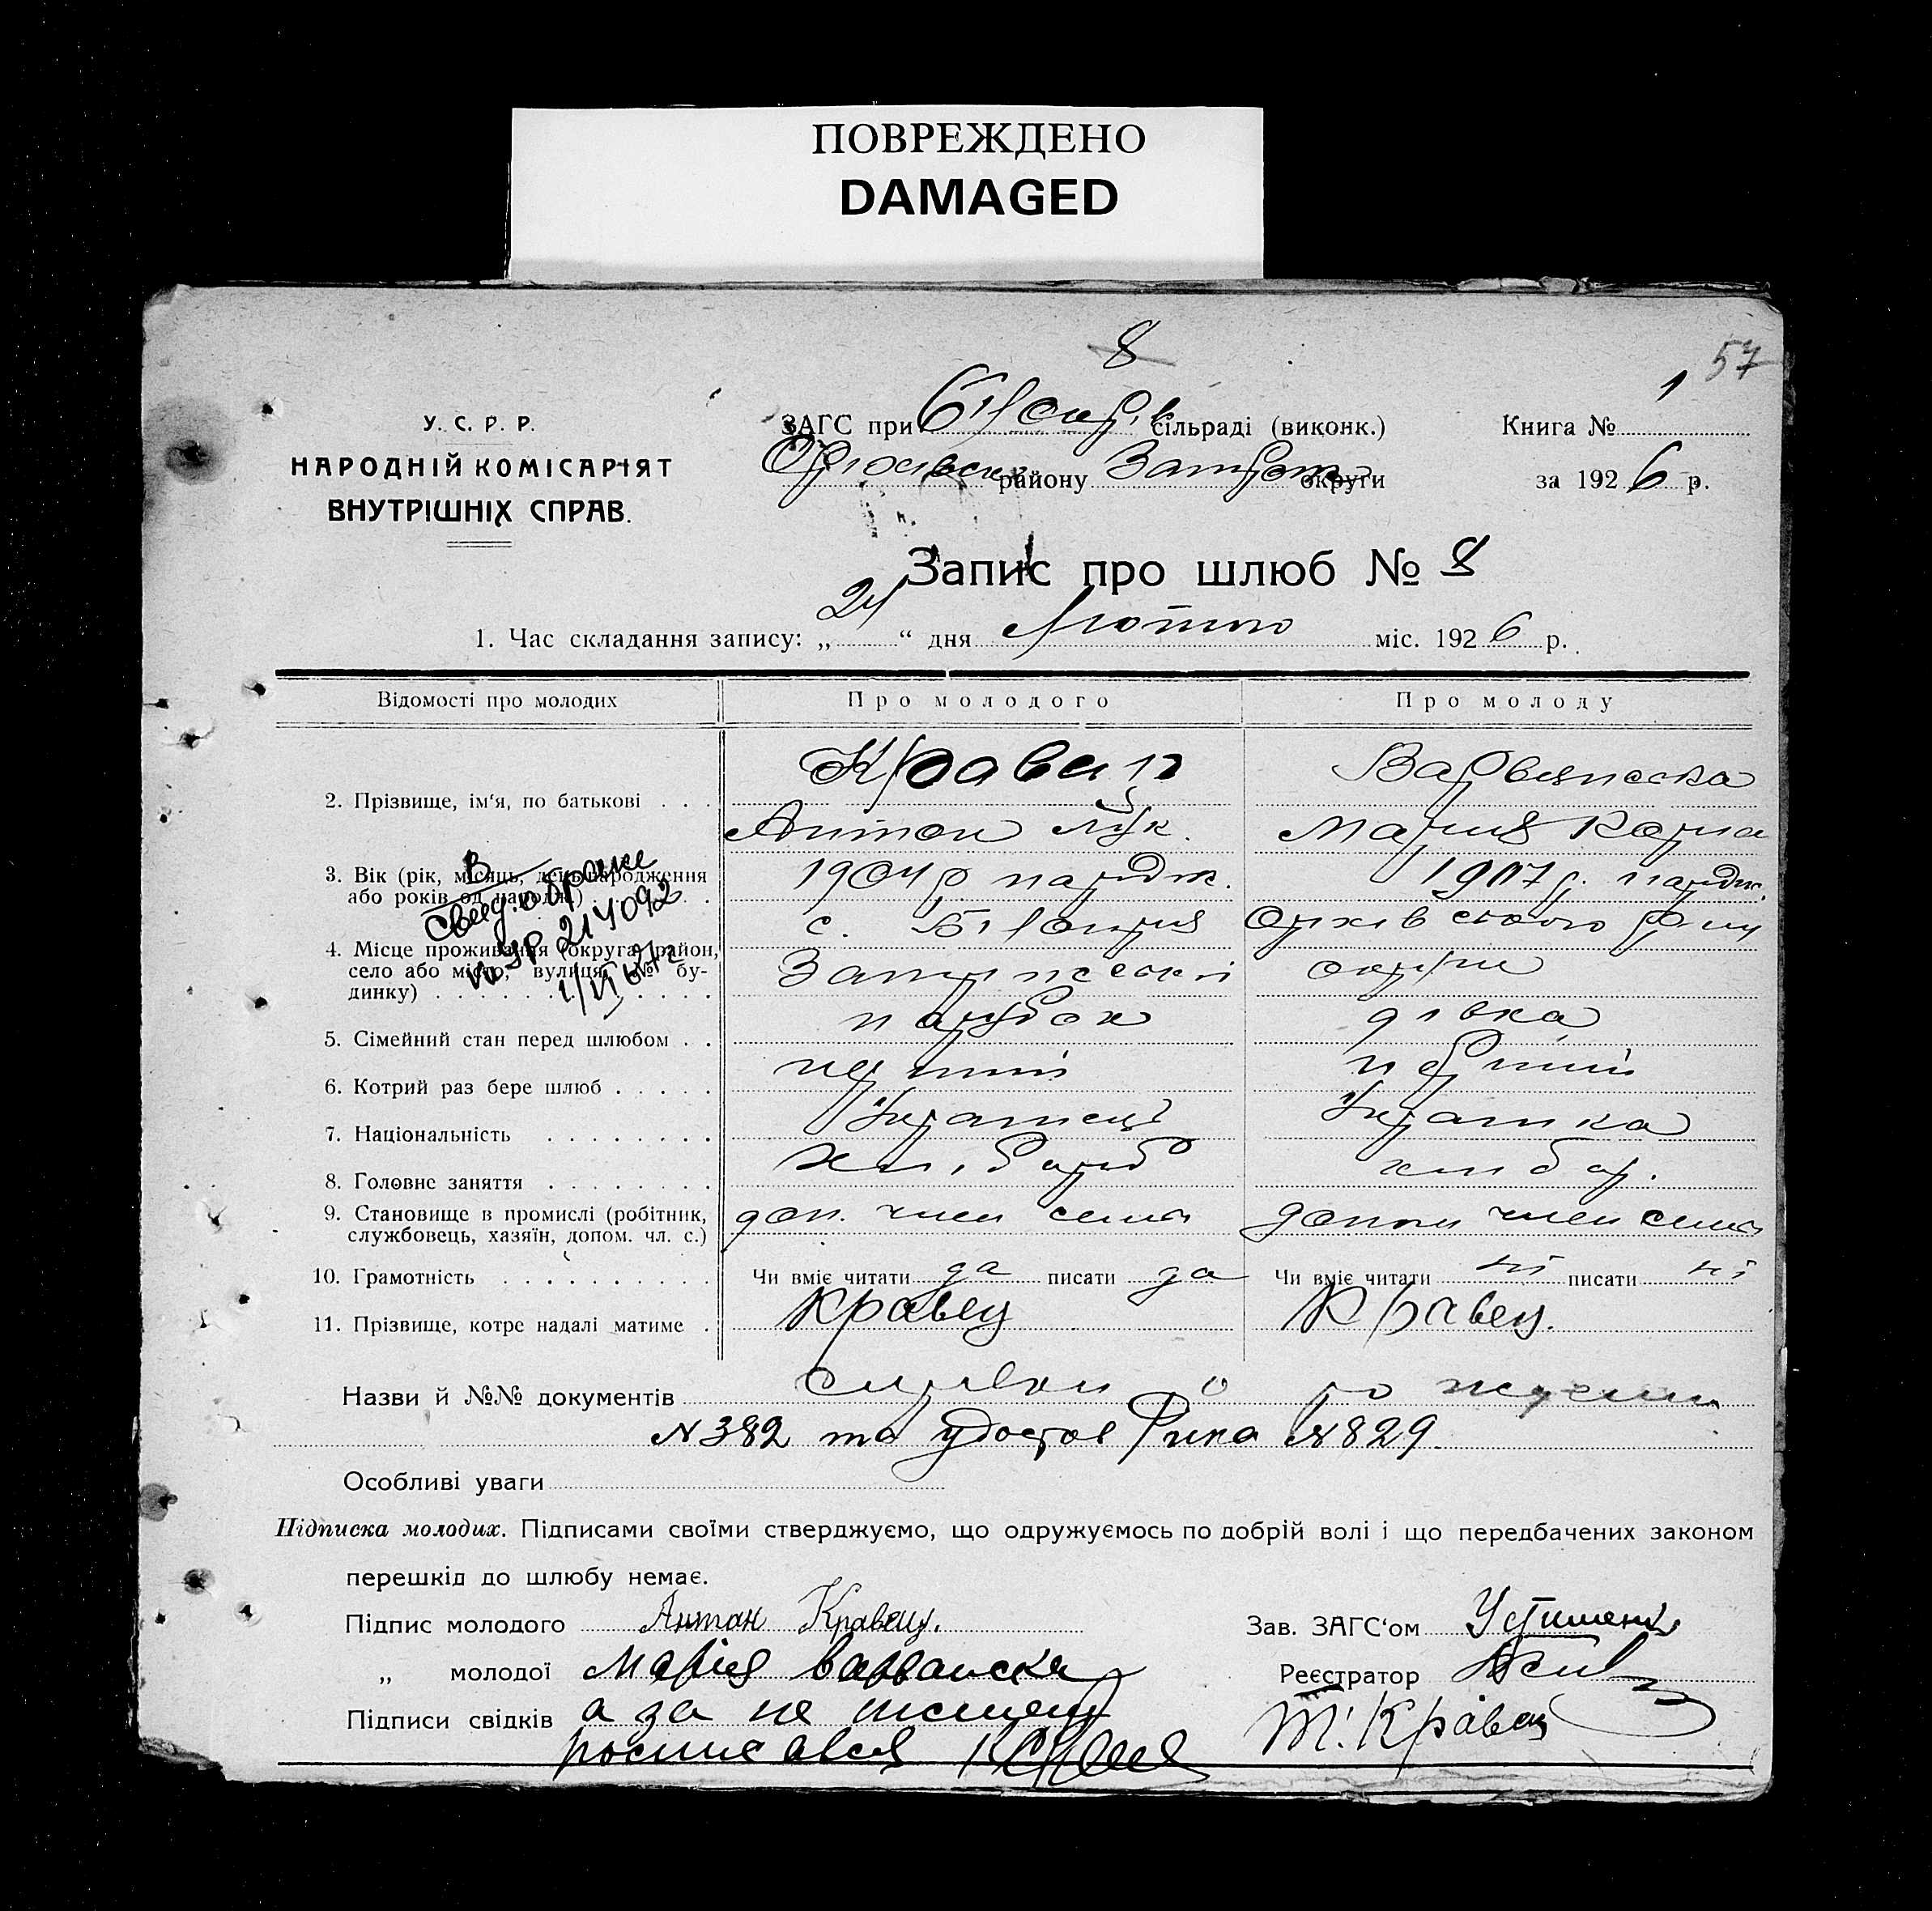 ПОВРЕЖДЕНО
DAMAGED
8
57
У. С. Р. Р.
НАРОДНІЙ КОМІСАРІЯТ
ВНУТРІШНІХ СПРАВ.
ЗАГС при сільраді (виконк.)
Книга № 1
району округи
за 1926 р.
Запис про шлюб № 8
1. Час складання запису: „24“ дня Лютого міс. 1926 р.
Відомості про молодих
Про молодого
Про молоду
2. Прізвище, ім‘я, по батькові . . .
Кравец
Антон Лук.
Мария
3. Вік (рік, місяць, день народження
або років од народж.)
1904 р народж.
1907 р. народж.
В
свид. о браке
УР 214092
4. Місце проживання (округа, район,
село або місто, вулиця, № бу-
динку) . . . . . . . . . . . . .
с.
Оріхівського району
Запоріжської
округи
5. Сімейний стан перед шлюбом . .
парубок
дівка
6. Котрий раз бере шлюб . . . . .
перший
перший
7. Національність . . . . . . . .
Українець
Українка
8. Головне заняття . . . . . . . .
хлібороб
хлібор.
9. Становище в промислі (робітник,
службовець, хазяїн, допом. чл. с.)
доп. член семьи
член семьи
10. Грамотність . . . . . . . . . .
Чи вміє читати да писати да
Чи вміє читати ні писати ні
11. Прізвище, котре надалі матиме .
Кравец
Кравец.
Назви й №№ документів
№ 382 та удостов Рика № 829
Особливі уваги
Підписка молодих. Підписами своїми стверджуємо, що одружуємось по добрій волі і що передбачених законом
перешкід до шлюбу немає.
Підпис молодого Антон Кравец.
Зав. ЗАГС‘ом
„ молодої Марія
Реєстратор
Підписи свідків а за не
росписався
Т. Кравец